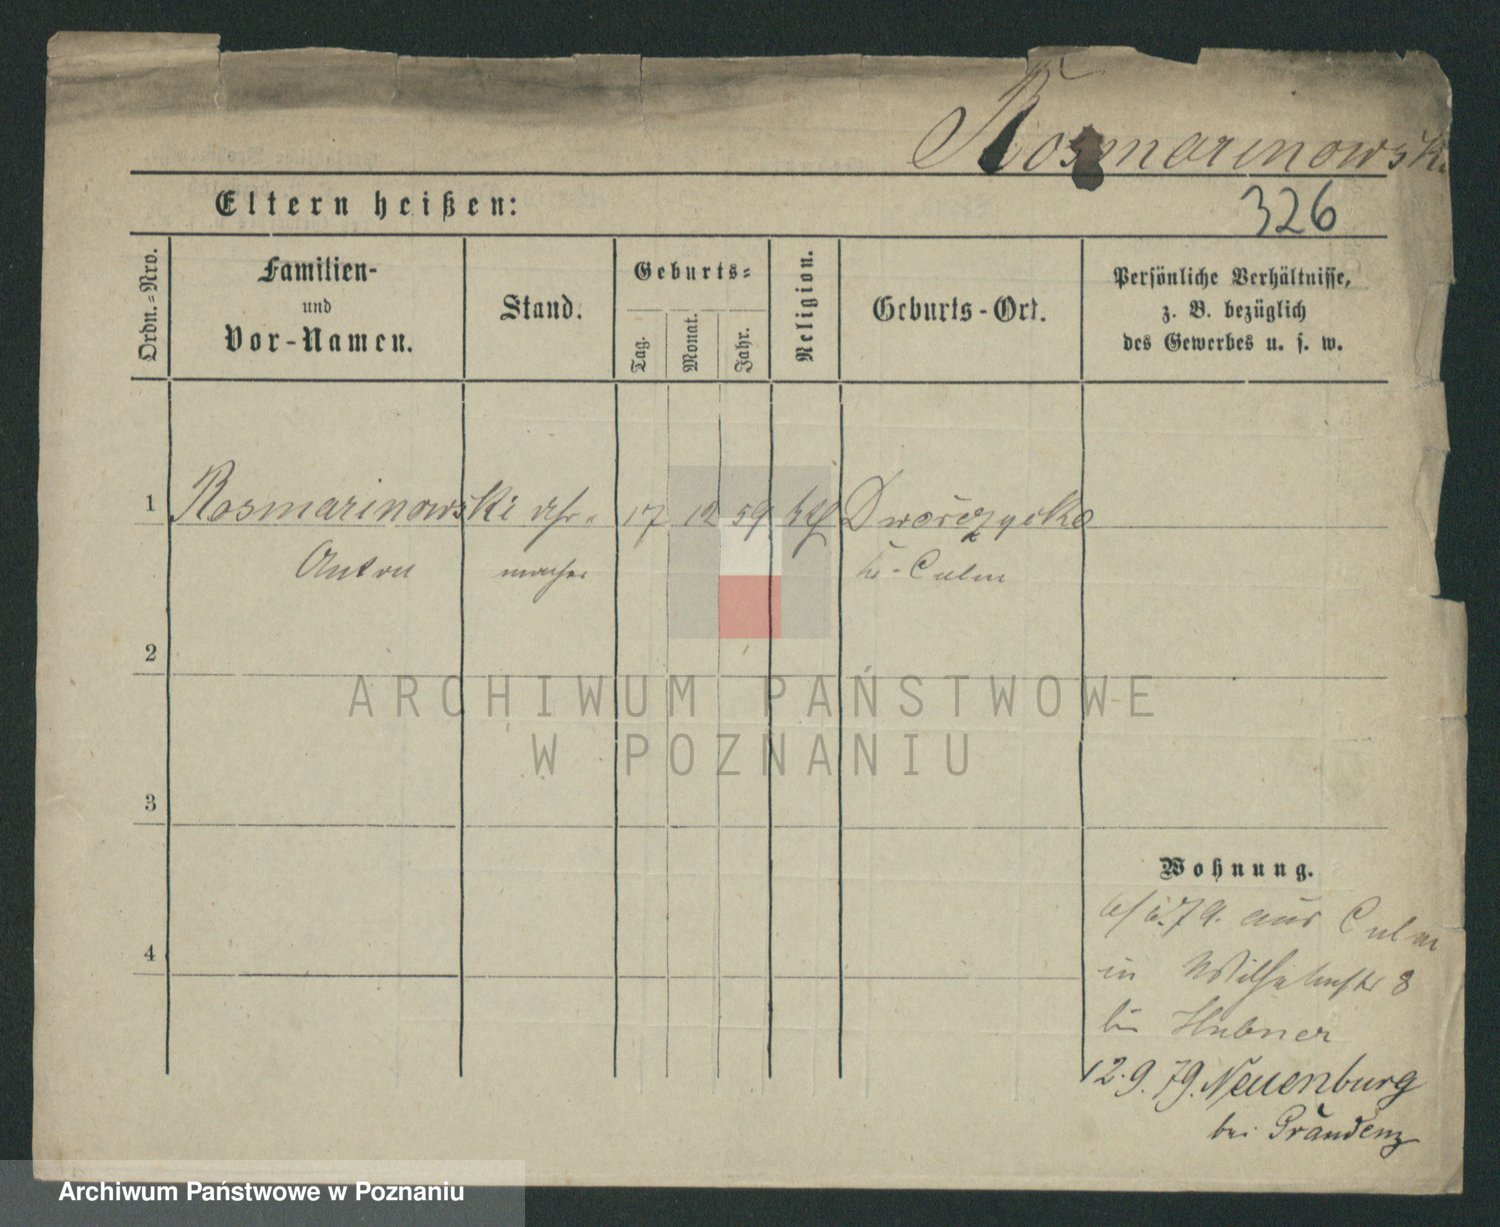 Rosmarinowski
Eltern heißen:
326
Ordn.=Nro.
Familien-
und
Vor-Namen.
Stand.
Geburts=
Tag.
Monat.
Jahr.
Religion.
Geburts-Ort.
Persönliche Verhältnisse,
z. B. bezüglich
des Gewerbes u. s. w.
1 Rosmarinowski Uhr= 17 12 59 kth
Anton macher Culm
2
3
4
Wohnung.
79. aus Culm
in Wilhelmstr 8
bei Hubner
12.9.79. Neuenburg
bei Graudenz
ARCHIWUM PAŃSTWOWE
W POZNANIU
Archiwum Państwowe w Poznaniu